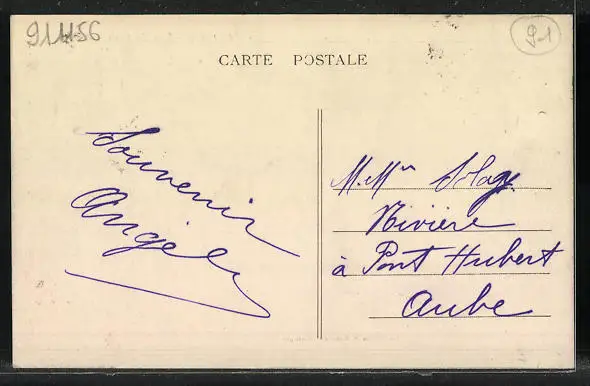 91456
91
CARTE POSTALE
Souvenir
Angèle
M. Mme
Rivière
à Pont Hubert
Aube